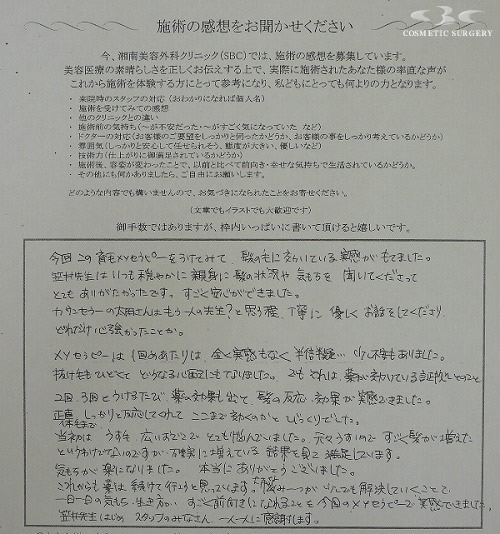 SBC
COSMETIC SURGERY
施術の感想をお聞かせください
今、湘南美容外科クリニック(SBC)では、施術の感想を募集しています。
美容医療の素晴らしさを正しくお伝えする上で、実際に施術されたあなた様の率直な声が
これから施術を体験する方にとって参考になり、私どもにとっても何よりの力となります。
・ 来院時のスタッフの対応 (おわかりになれば個人名)
・ 施術を受けてみての感想
・ 他のクリニックとの違い
・ 施術前の気持ち(～が不安だった・～がすごく気になっていた など)
・ ドクターの対応(お客様のご要望をしっかりと伺ったかどうか、お客様の事をしっかり考えているかどうか)
・ 雰囲気(しっかりと安心して任せられそう、態度が大きい、優しい など)
・ 技術力(仕上がりに御満足されているかどうか)
・ 施術後、容姿が変わったことで、以前と比べて前向き・幸せな気持ちで生活されているかどうか。
・ その他にも何かありましたら、ご自由にお願いします。
どのような内容でも構いませんので、お気づきになられたことをお寄せください。
(文章でもイラストでも大歓迎です)
御手数ではありますが、枠内いっぱいに書いて頂けると嬉しいです。
今回この育毛メソセラピーをうけてみて、髪の毛に効いている実感がもてました。
笠井先生はいつも穏やかに親身に髪の状況や気もちを聞いてくださって
とてもありがたかったです。すごく安心ができました。
カウンセラーの太田さんはもう一人の先生?と思う程、丁寧に優しくお話をしてくださり、
どれだけ心強かったことか。
メソセラピーは1回めあたりは、全く実感もなく半信半疑… 少し不安もありました。
抜け毛もひどくて どうなるか心配にもなりました。でもそれは、薬が効いている証拠とのこと
2回、3回とうけるたび、薬の効果も出て、髪の反応、効果が実感できました。
正直しっかりと反応してくれて ここまで効くのかと びっくりでした。
当初は うすく広いおでこで とても悩んでいました。元々うすいので すごく髪が増えた
というわけでないのですが 不確実に増えている 結果を見て 満足しています。
気もちが 楽になりました。 本当に ありがとうございました。
これからも薬は続けて行こうと思っています。悩み一つが少しでも解決していくことで
一日一日の気もち、生き方が すごく前向きになれることを今回のメソセラピーで実感できました。
笠井先生はじめ スタッフのみなさん 一人一人に感謝します。